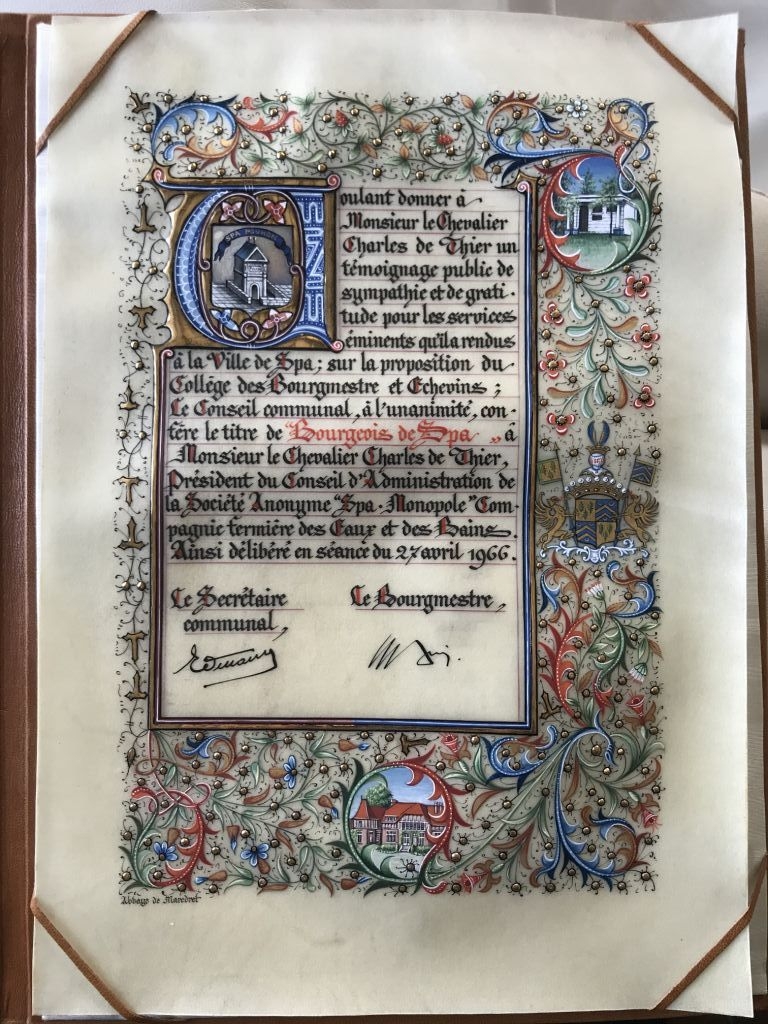 Voulant donner à
Monsieur le Chevalier
Charles de Thier un
témoignage public de
sympathie et de grati-
tude pour les services
éminents qu'il a rendus
à la Ville de Spa; sur la proposition du
Collège des Bourgmestre et Echevins;
Le Conseil communal, à l'unanimité, con-
fère le titre de "Bourgeois de Spa" à
Monsieur le Chevalier Charles de Thier,
Président du Conseil d'Administration de
la Société Anonyme "Spa-Monopole" Com-
pagnie fermière des Eaux et des Bains.
Ainsi délibéré en séance du 27 avril 1966.
Le Secrétaire
communal,
Le Bourgmestre,
SPA POUHON
Abbaye de Maredret